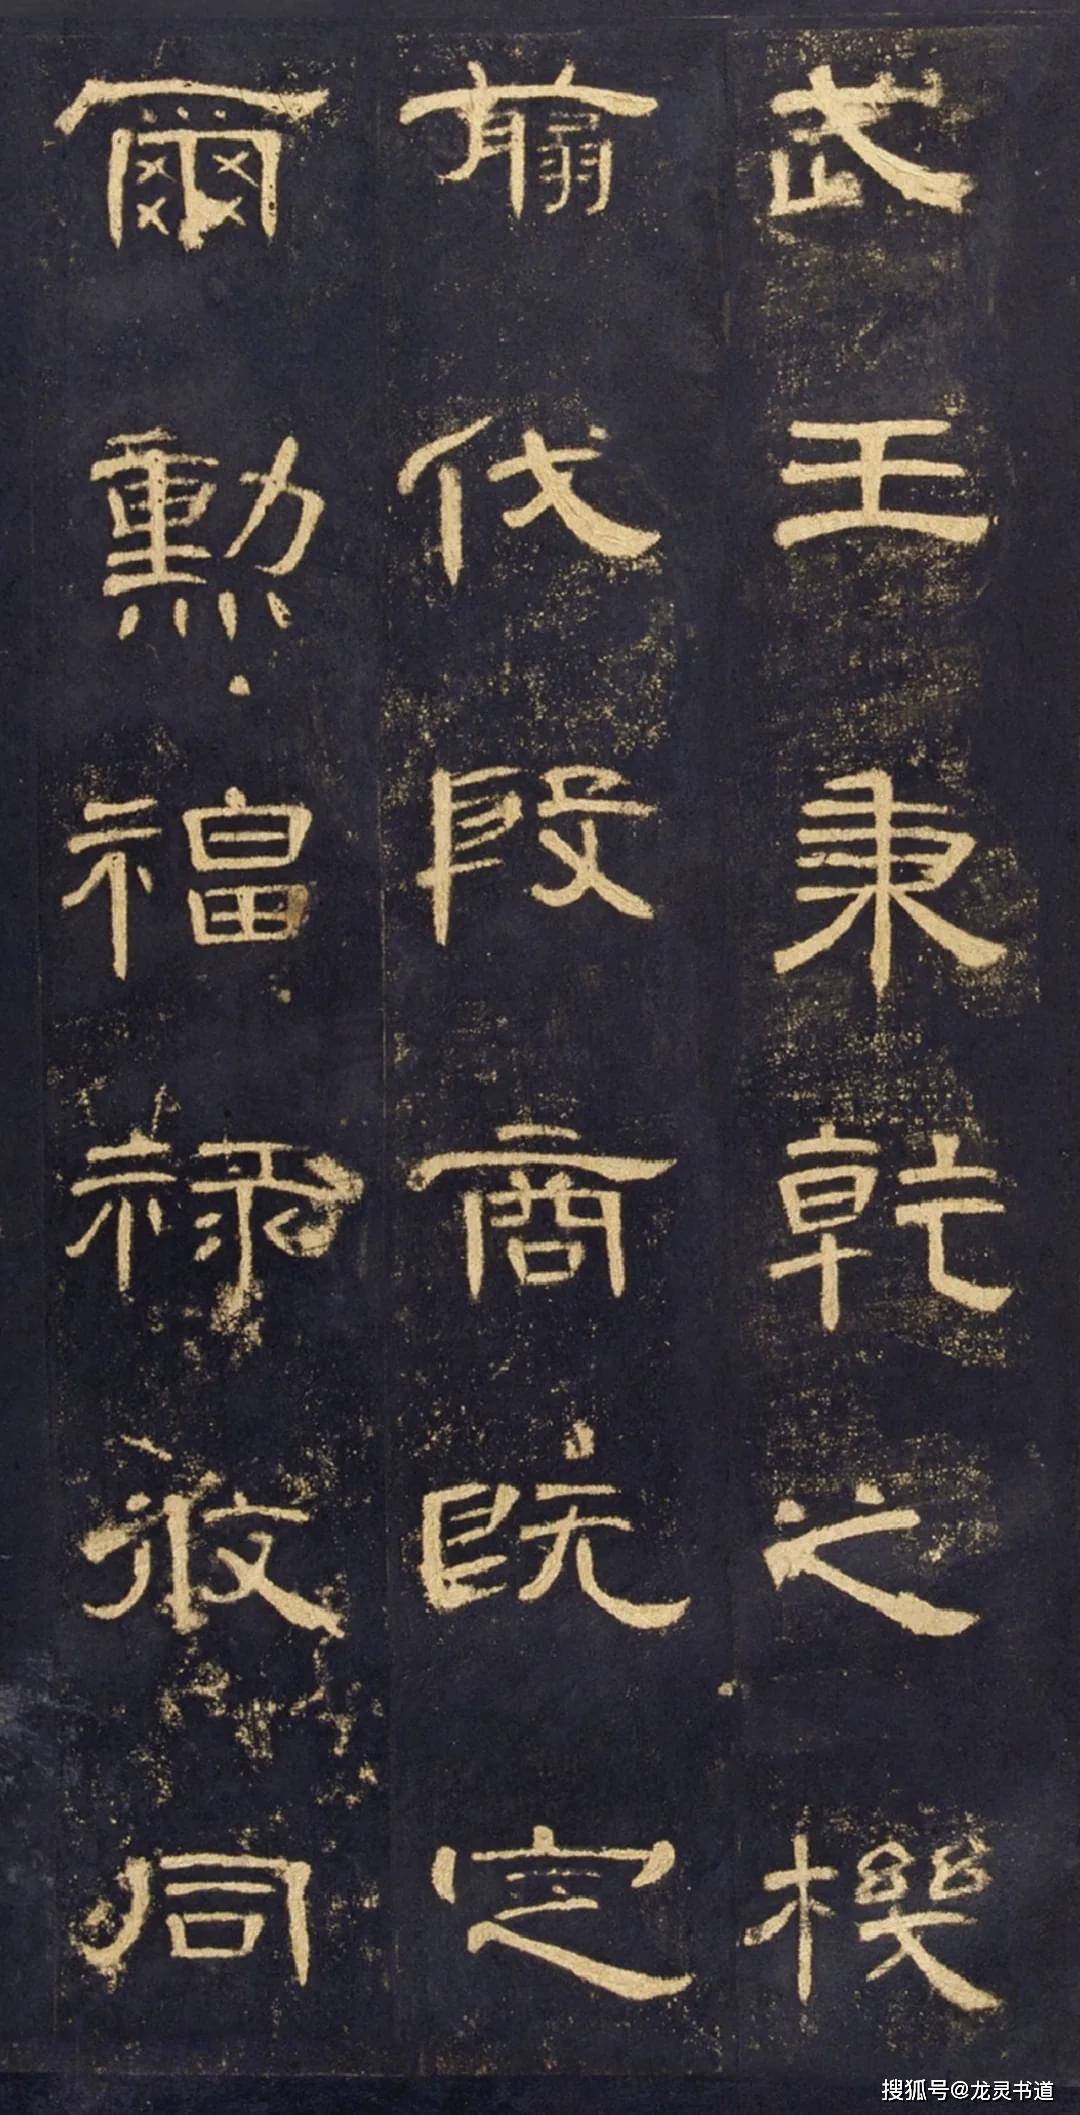 武王秉乾之機
翦伐殷商既定
爾勳福祿攸同
搜狐号@龙灵书道